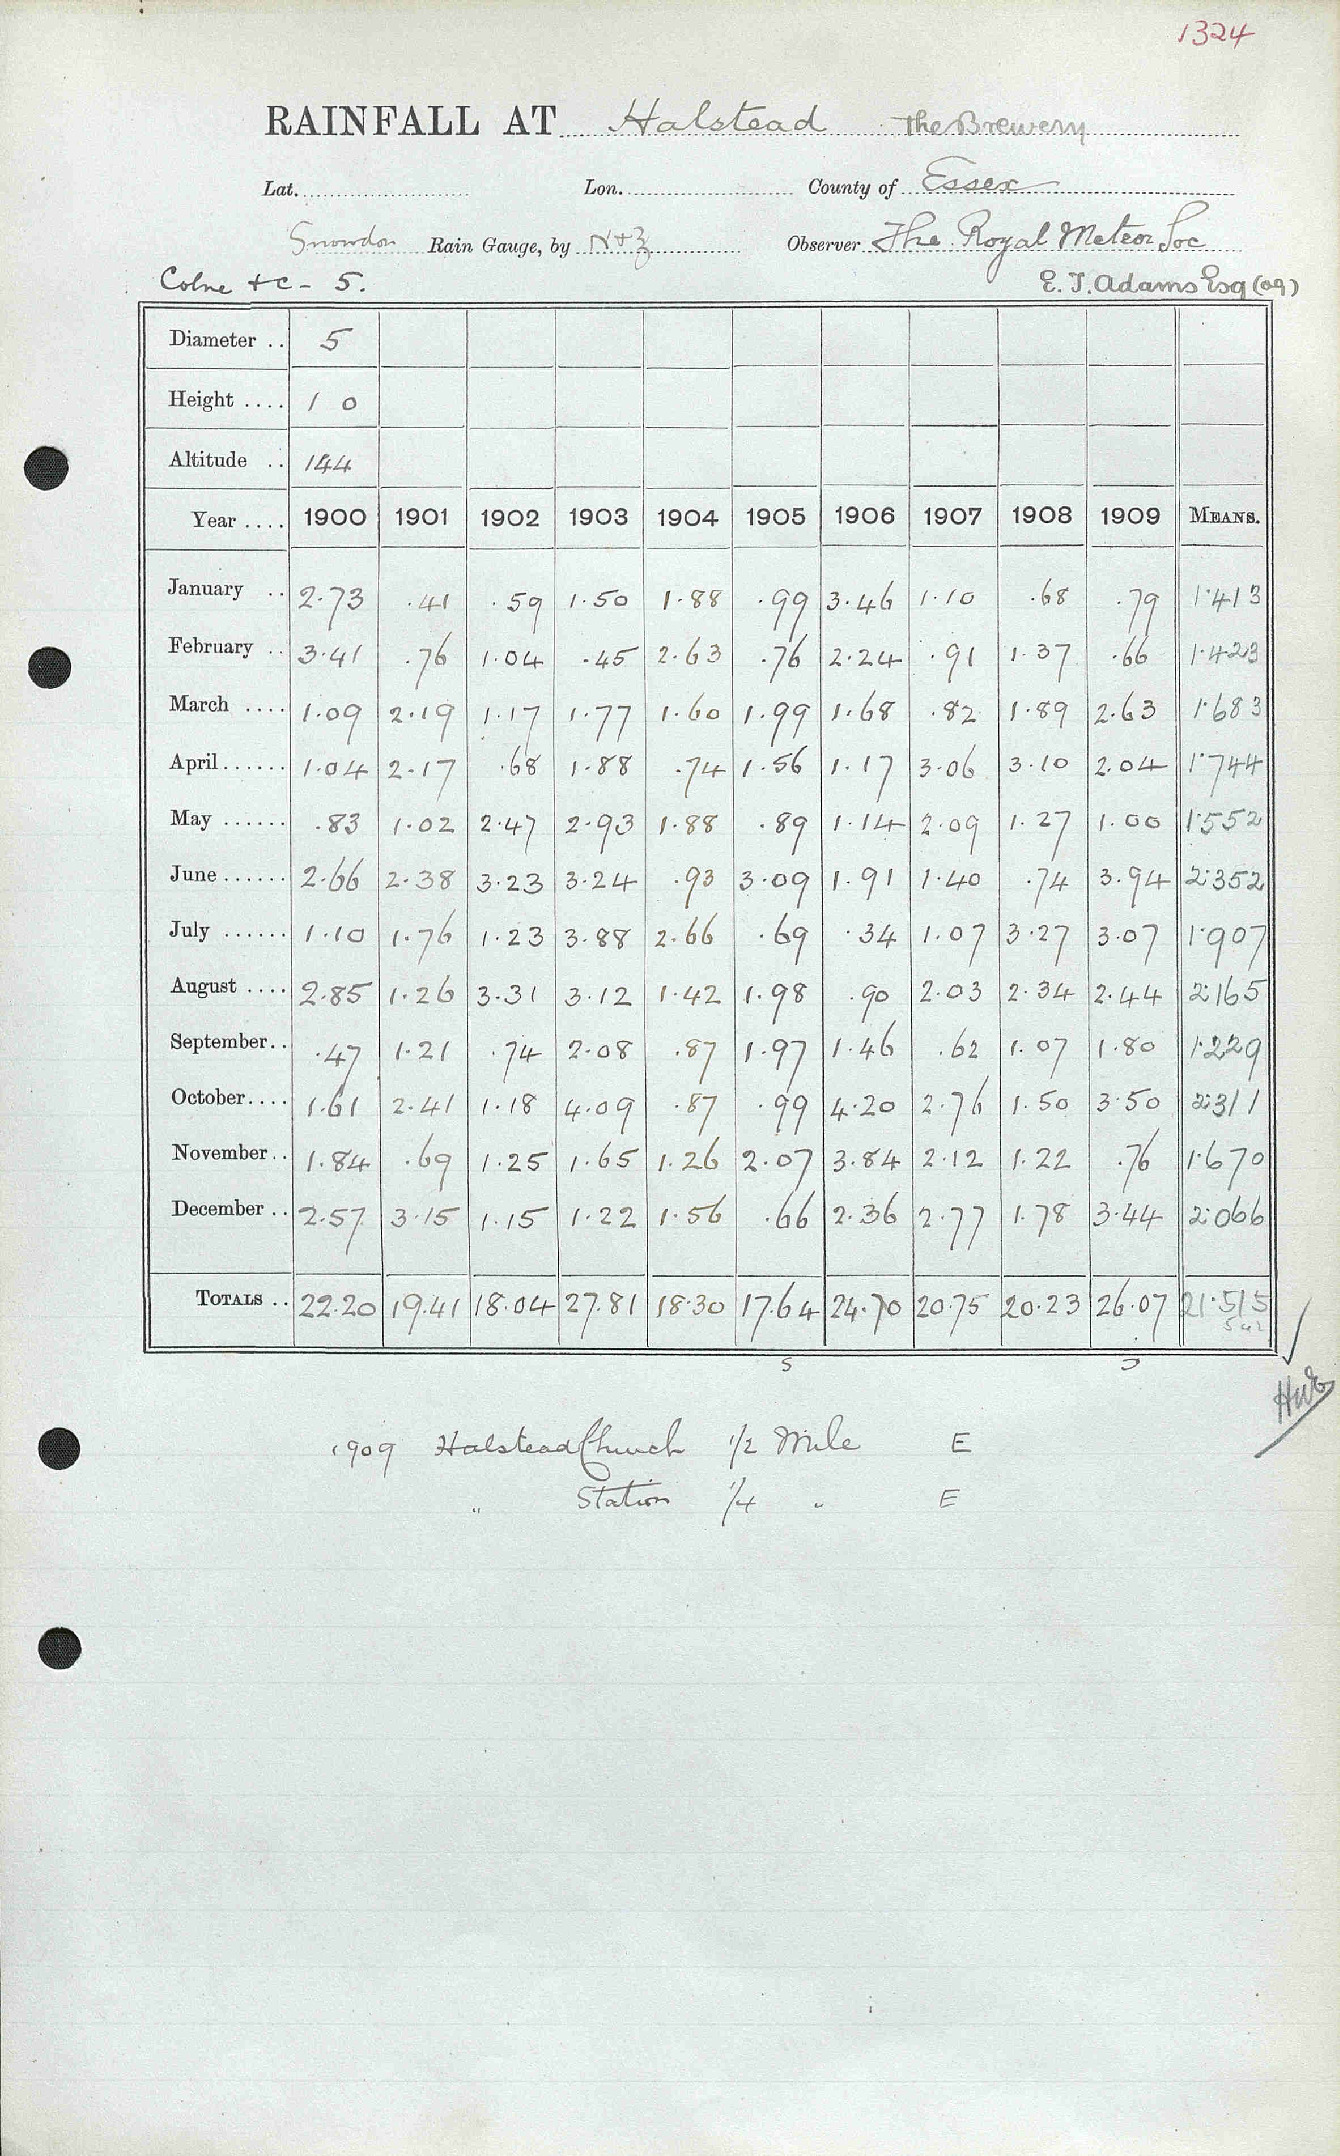 1324
RAINFALL AT Halstead The Brewery
Lat. Lon. County of Essex
Snowdon Rain Gauge, by N+Z Observer The Royal Meteor Soc
Colne +c - 5. E. J. Adams Esq (09)
Diameter .. 5
Height .... 1 0
Altitude .. 144
Year .... 1900 1901 1902 1903 1904 1905 1906 1907 1908 1909 MEANS.
January .. 2.73 .41 .59 1.50 1.88 .99 3.46 1.10 .68 .79 1.413
February .. 3.41 .76 1.04 .45 2.63 .76 2.24 .91 1.37 .66 1.423
March .... 1.09 2.19 1.17 1.77 1.60 1.99 1.68 .82 1.89 2.63 1.683
April...... 1.04 2.17 .68 1.88 .74 1.56 1.17 3.06 3.10 2.04 1.744
May ...... .83 1.02 2.47 2.93 1.88 .89 1.14 2.09 1.27 1.00 1.552
June ...... 2.66 2.38 3.23 3.24 .93 3.09 1.91 1.40 .74 3.94 2.352
July ...... 1.10 1.76 1.23 3.88 2.66 .69 .34 1.07 3.27 3.07 1.907
August .... 2.85 1.26 3.31 3.12 1.42 1.98 .90 2.03 2.34 2.44 2.165
September.. .47 1.21 .74 2.08 .87 1.97 1.46 .62 1.07 1.80 1.229
October.... 1.61 2.41 1.18 4.09 .87 .99 4.20 2.76 1.50 3.50 2.311
November.. 1.84 .69 1.25 1.65 1.26 2.07 3.84 2.12 1.22 .76 1.670
December .. 2.57 3.15 1.15 1.22 1.56 .66 2.36 2.77 1.78 3.44 2.066
TOTALS .. 22.20 19.41 18.04 27.81 18.30 17.64 24.70 20.75 20.23 26.07 21.515
5
1909 Halstead Church 1/2 Mile E
" Station 1/4 " E